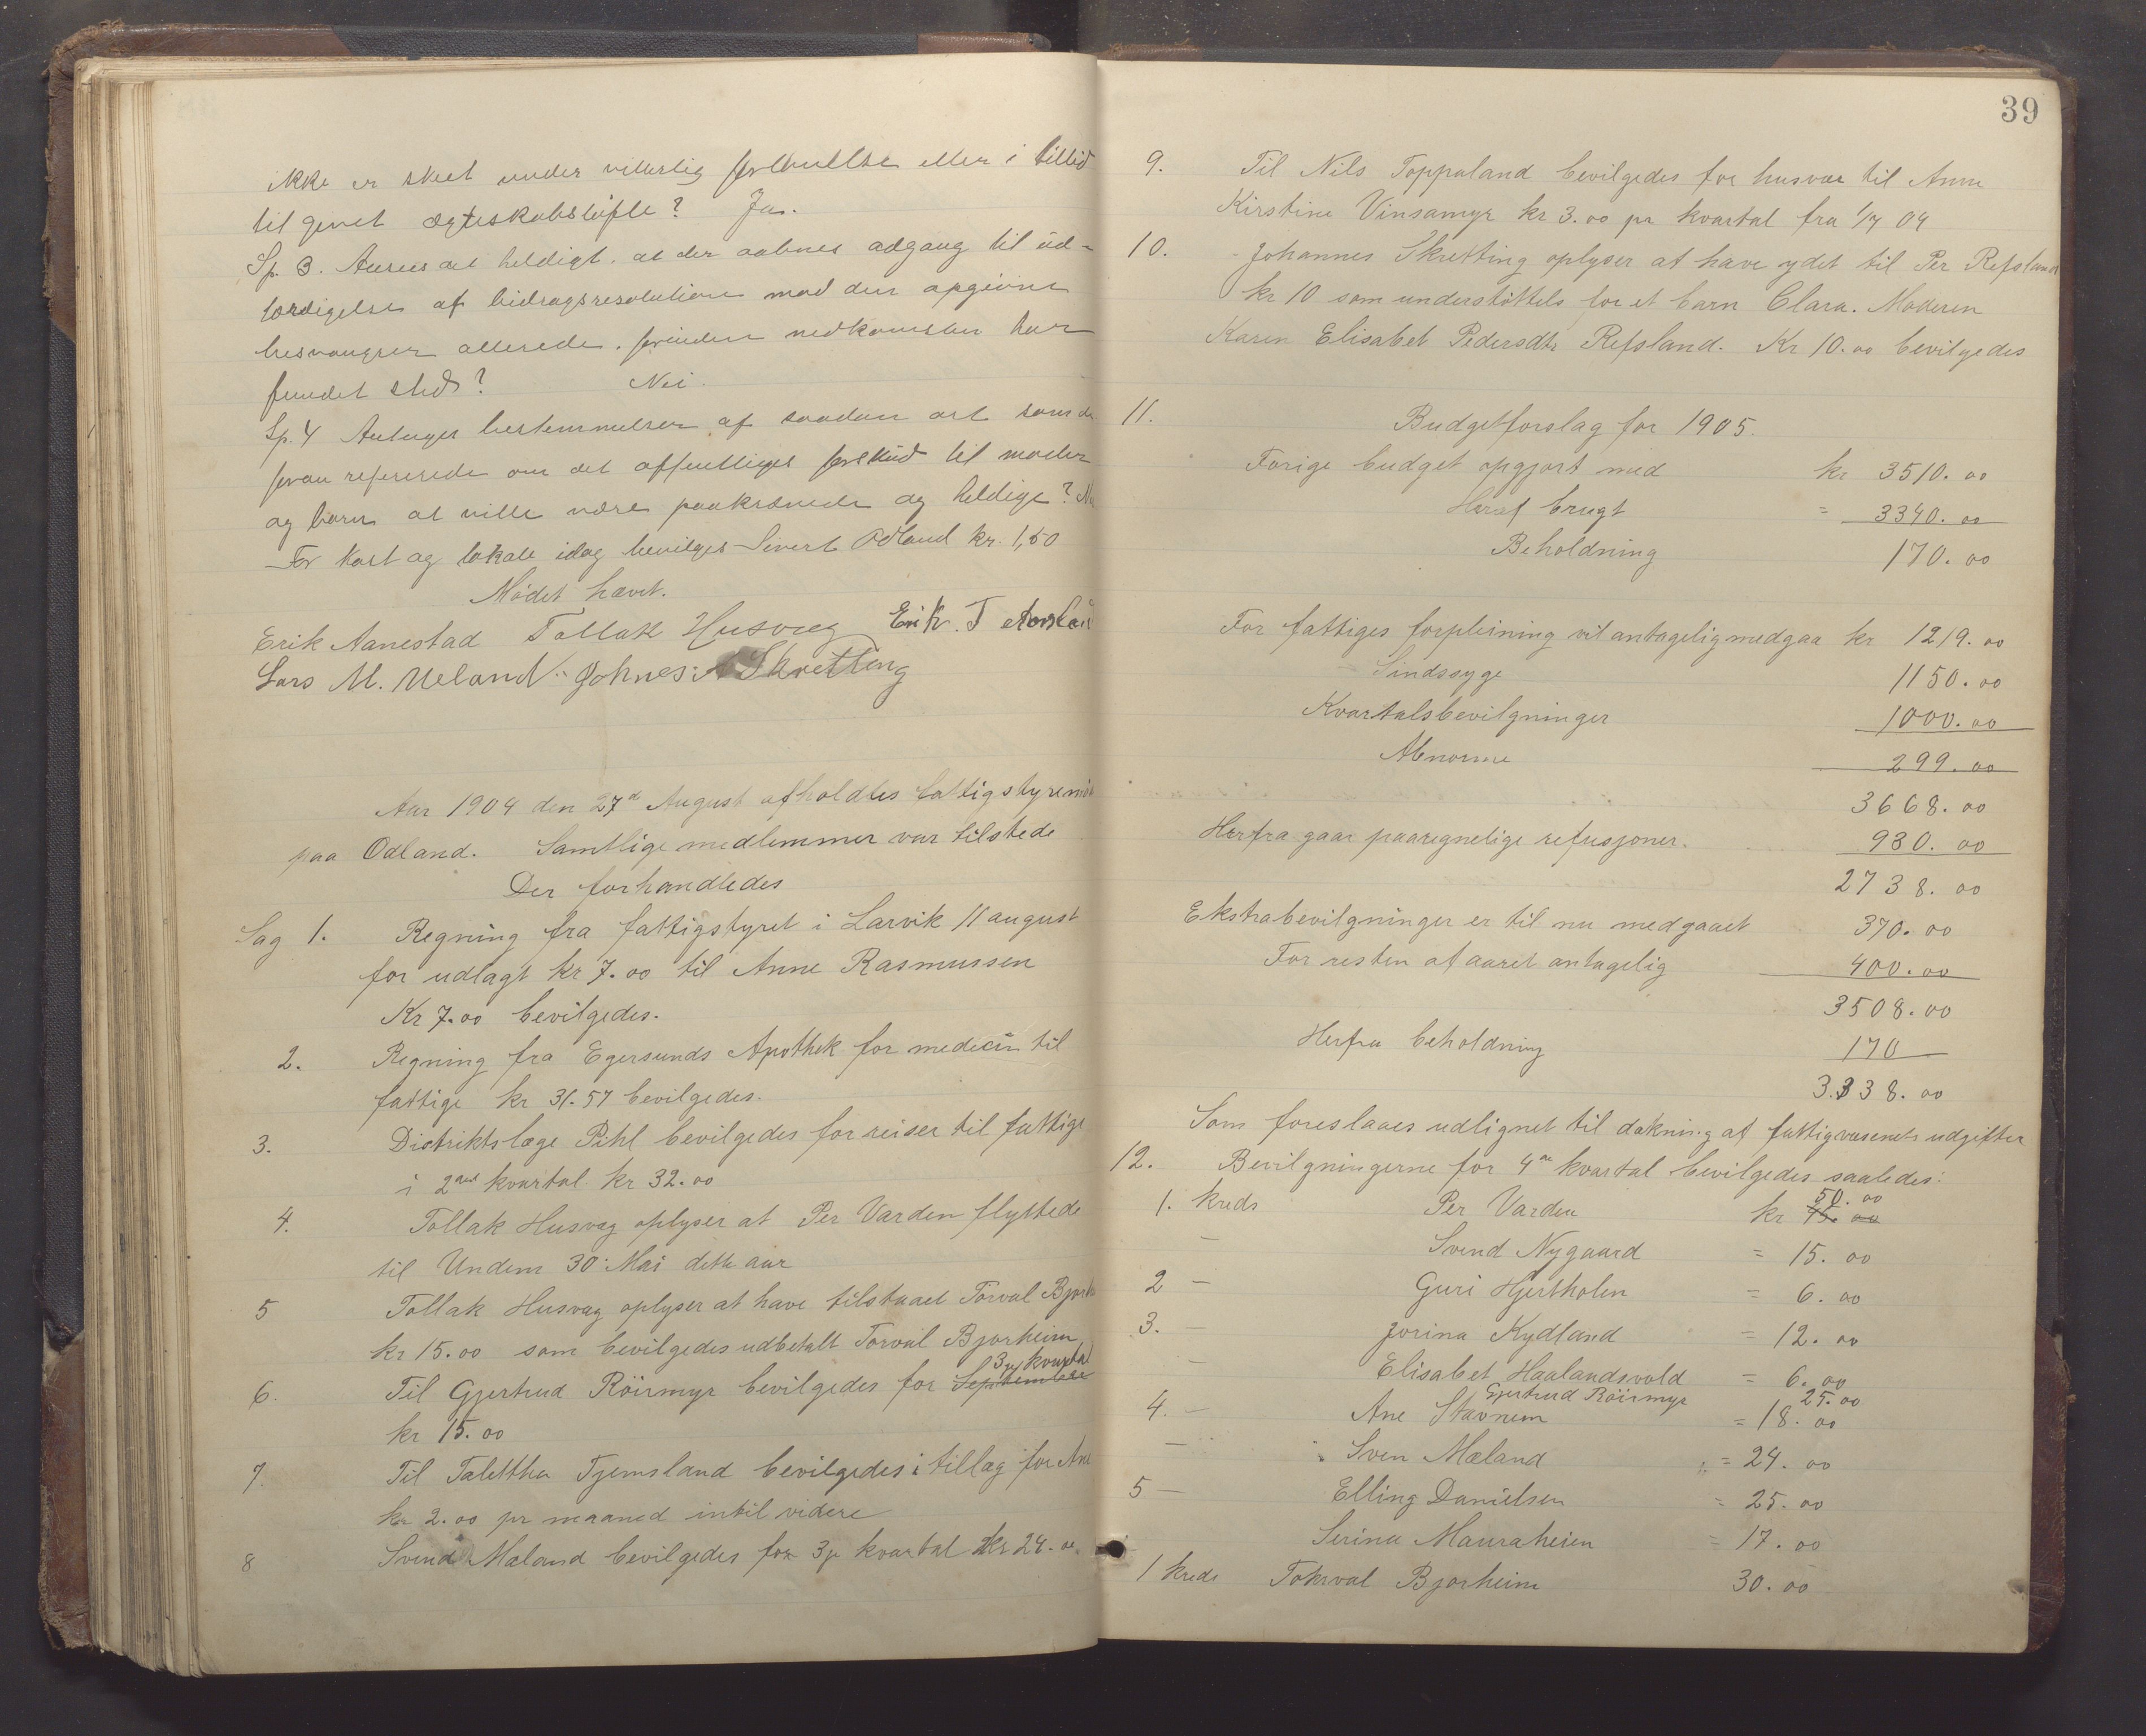 ikke er skeet under vilkerlig forhullse eller i tillid
til givet ægteskabsløfte? Ja.
Sp. 3. Ansees det heldigt, at der aabnes adgang til ud-
færdigelse af bidragsresolution mod den opgivne
besvangrer allerede, forinden nedkomsten har
fundet sted? Nei.
Sp. 4 Antages bestemmelser af saadan art som de
foran refererede om det offentliges forskud til moder
og barn at ville være paakrævede og heldige? Nei
For kost og lokale idag bevilges Sivert Odland kr. 1,50
Mödet hævet.
Erik Aanestad Tollak Husvæg Erik. T
Lars M. Ueland Johnes: A Skretting
Aar 1904 den 27d August afholdtes fattigstyremöte
paa Odland. Samtlige medlemmer var tilstede
Der forhandledes
Sag 1. Regning fra fattigstyret i Larvik 11 august
for udlagt kr 7.00 til Anne Rasmussen
Kr 7.00 bevilgedes.
2. Regning fra Egersunds Apothek for medicin til
fattige kr 31.57 bevilgedes.
3. Distriktslæge Pihl bevilgedes for reiser til fattige
i 2det kvartal kr 32.00
4. Tollak Husvæg oplyser at Per Varden flyttede
til Undem 30. Mai dette aar
5 Tollak Husvæg oplyser at have tilstaaet Torval Bjorheim
kr 15.00 som bevilgedes udbetalt Torval Bjorheim
6. Til Gjertrud Röirmyr bevilgedes for September 3je kvartal
kr 15.00
7. Til Talettha Tjemsland bevilgedes i tillæg for Ane
kr 2.00 pr maaned intil videre
8 Svend Mæland bevilgedes for 3je kvartal kr 24.00
39
9. Til Nils Toppaland bevilgedes for husvær til Anne
Kirstine Vinsamyr kr 3.00 pr kvartal fra 1/7 04
10. Johannes Skretting oplyser at have ydet til Per Refsland
kr 10 som understöttels for et barn Clara. Moderen
Karen Elisabet Pedersdtr Refsland. Kr 10.00 bevilgedes
11. Budgetforslag for 1905.
Forige budget opgjort med kr 3510.00
Heraf brugt = 3340.00
Beholdning 170.00
For fattiges forpleining vil antagelig medgaa kr 1219.00
Sindssyge 1150.00
Kvartalsbevilgninger 1000.00
Abnorme 299.00
3668.00
Herfra gaar paaregnelige refusjoner. 930.00
2738.00
Ekstrabevilgninger er til nu medgaaet 370.00
For resten af aaret antagelig 400.00
3508.00
Herfra beholdning 170
3.338.00
Som foreslaaes udlignet til dækning af fattigvæsenets udgifter
12. Bevilgningerne for 4de kvartal bevilgedes saaledes:
1. kreds Per Varden kr 75.00 50.00
— Svend Nygaard = 15.00
2 — Guri Hjertholen = 6.00
3. — Jorina Kydland = 12.00
— Elisabet Haalandsvold = 6.00
Gjertrud Röirmyr 25.00
4. — Ane Stavnem = 18.00
— Sven Mæland = 24.00
5 — Elling Danielsen = 25.00
Serina Mauraheien = 17.00
1 kreds Tohrval Bjorheim 30.00